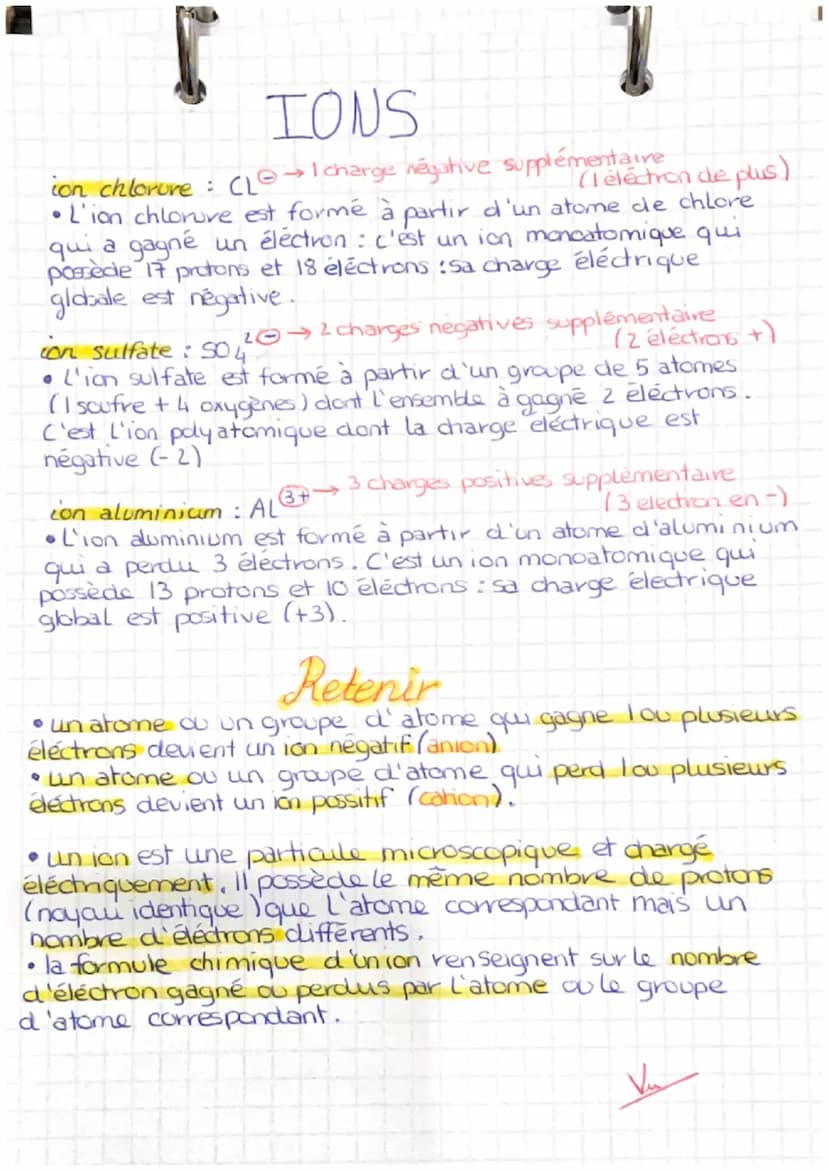 IONS
ion chlorure : CL⊖ → 1 charge négative supplémentaire
(1 éléctron de plus)
• L'ion chlorure est formé à partir d'un atome de chlore
qui a gagné un éléctron : c'est un ion monoatomique qui
possède 17 protons et 18 éléctrons : sa charge éléctrique
globale est négative.
ion sulfate : SO₄²⊖ → 2 charges négatives supplémentaire
(2 éléctrons +)
• L'ion sulfate est formé à partir d'un groupe de 5 atomes
(1 soufre + 4 oxygènes) dont l'ensemble à gagné 2 éléctrons.
C'est l'ion polyatomique dont la charge éléctrique est
négative (-2)
ion aluminium : AL³⁺ → 3 charges positives supplémentaire
(3 electron en -)
• L'ion aluminium est formé à partir d'un atome d'aluminium
qui a perdu 3 éléctrons. C'est un ion monoatomique qui
possède 13 protons et 10 éléctrons : sa charge électrique
global est positive (+3).
Retenir
• un atome ou un groupe d'atome qui gagne 1 ou plusieurs
éléctrons devient un ion négatif (anion)
• un atome ou un groupe d'atome qui perd 1 ou plusieurs
éléctrons devient un ion possitif (cation).
• un ion est une particule microscopique et chargé
éléctriquement. Il possède le même nombre de protons
(noyau identique) que l'atome correspondant mais un
nombre d'éléctrons différents.
• la formule chimique d'un ion renseignent sur le nombre
d'éléctron gagné ou perdus par l'atome ou le groupe
d'atome correspondant.
Vu